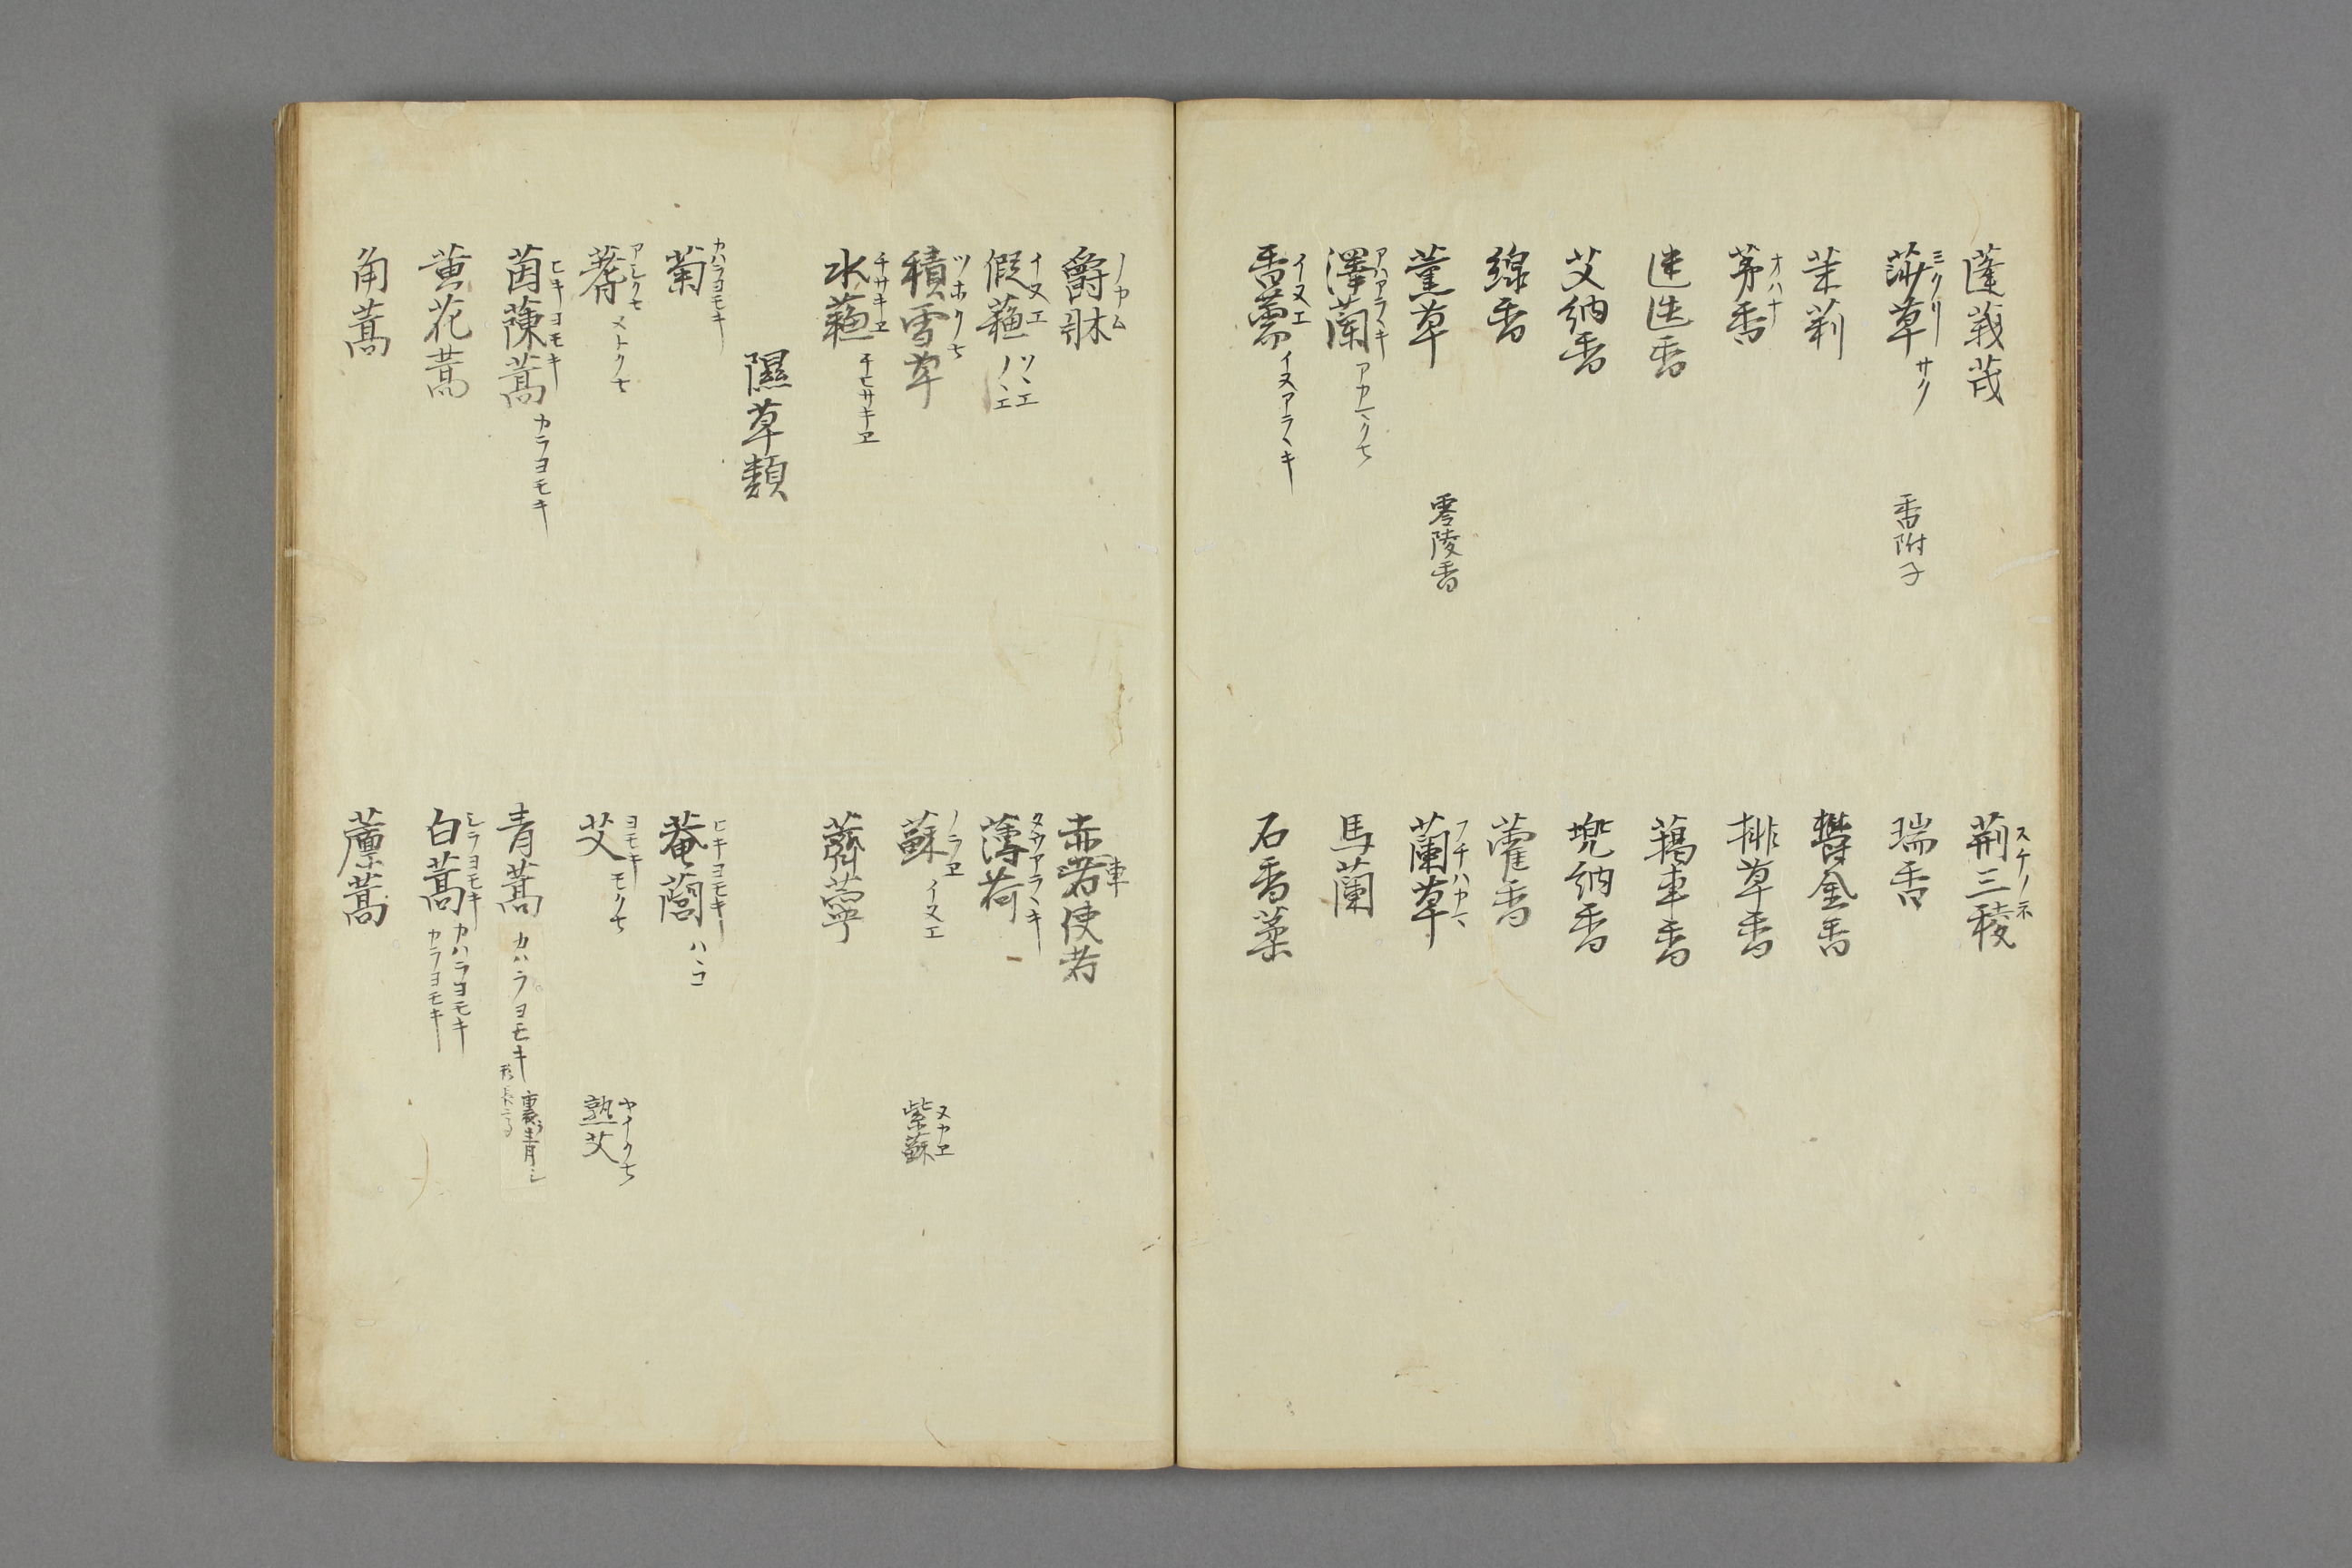 蓬莪茂
荊三稜 スケノネ
莎草 ミクリ サク 香附子
瑞香
茉莉
鬱金香
茅香 オハナ
排草香
迷迭香
藒車香
艾納香
兜納香
線香
藿香
薫草 零陵香
蘭草 フチハカマ
澤蘭 アハアラヽキ アカマクサ
馬蘭
香薷 イヌエ イヌアラヽキ
石香葇
爵牀
赤車使者
假蘓 イヌエ ノヽエ
薄荷
積雪草 ツホクサ
蘇 ノラヱ イヌエ 紫蘇 ヌカヱ
水蘓 チサキヱ チヒサキヱ
薺薴
隰草類
菊 カハラヨモキ
菴䕡 ヒキヨモキ ハヽコ
蓍 アシクサ メトクサ
艾 ヨモキ モクサ 熟艾 ヤイクサ
茵蔯蒿 ヒキヨモキ カラヨモキ
青蒿 カハラヨモキ
黄花蒿
白蒿 シラヨモキ カハラヨモキ カラヨモキ
角蒿
藁蒿